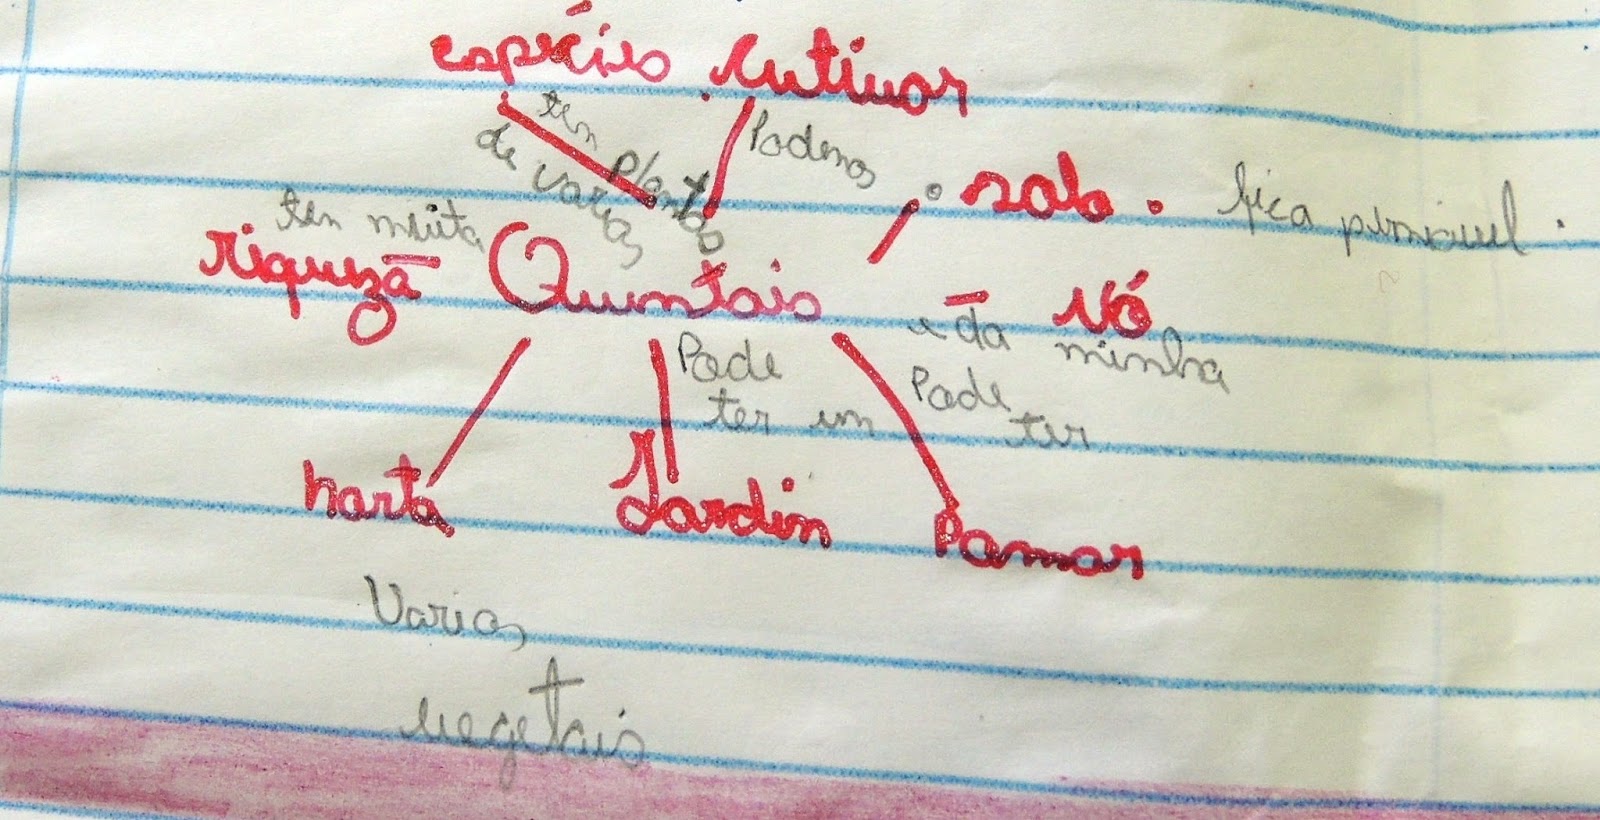 espécies cutivar
ten plantas
de varias
Podemos
solo . fica permiavel .
ten muita
riqueza Quintais
e da Vó
minha
Pode
ter um
Pode
ter
horta Jardin Pomar
Varios
vegetais